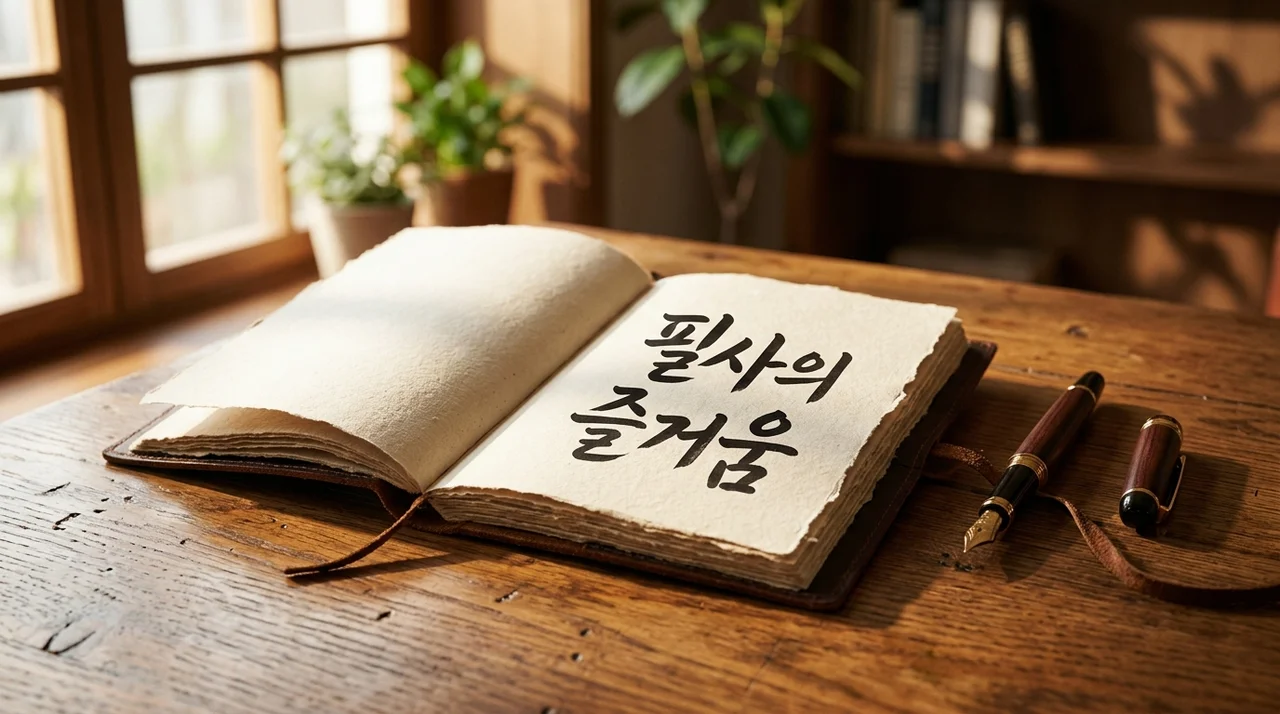 필사의
즐거움